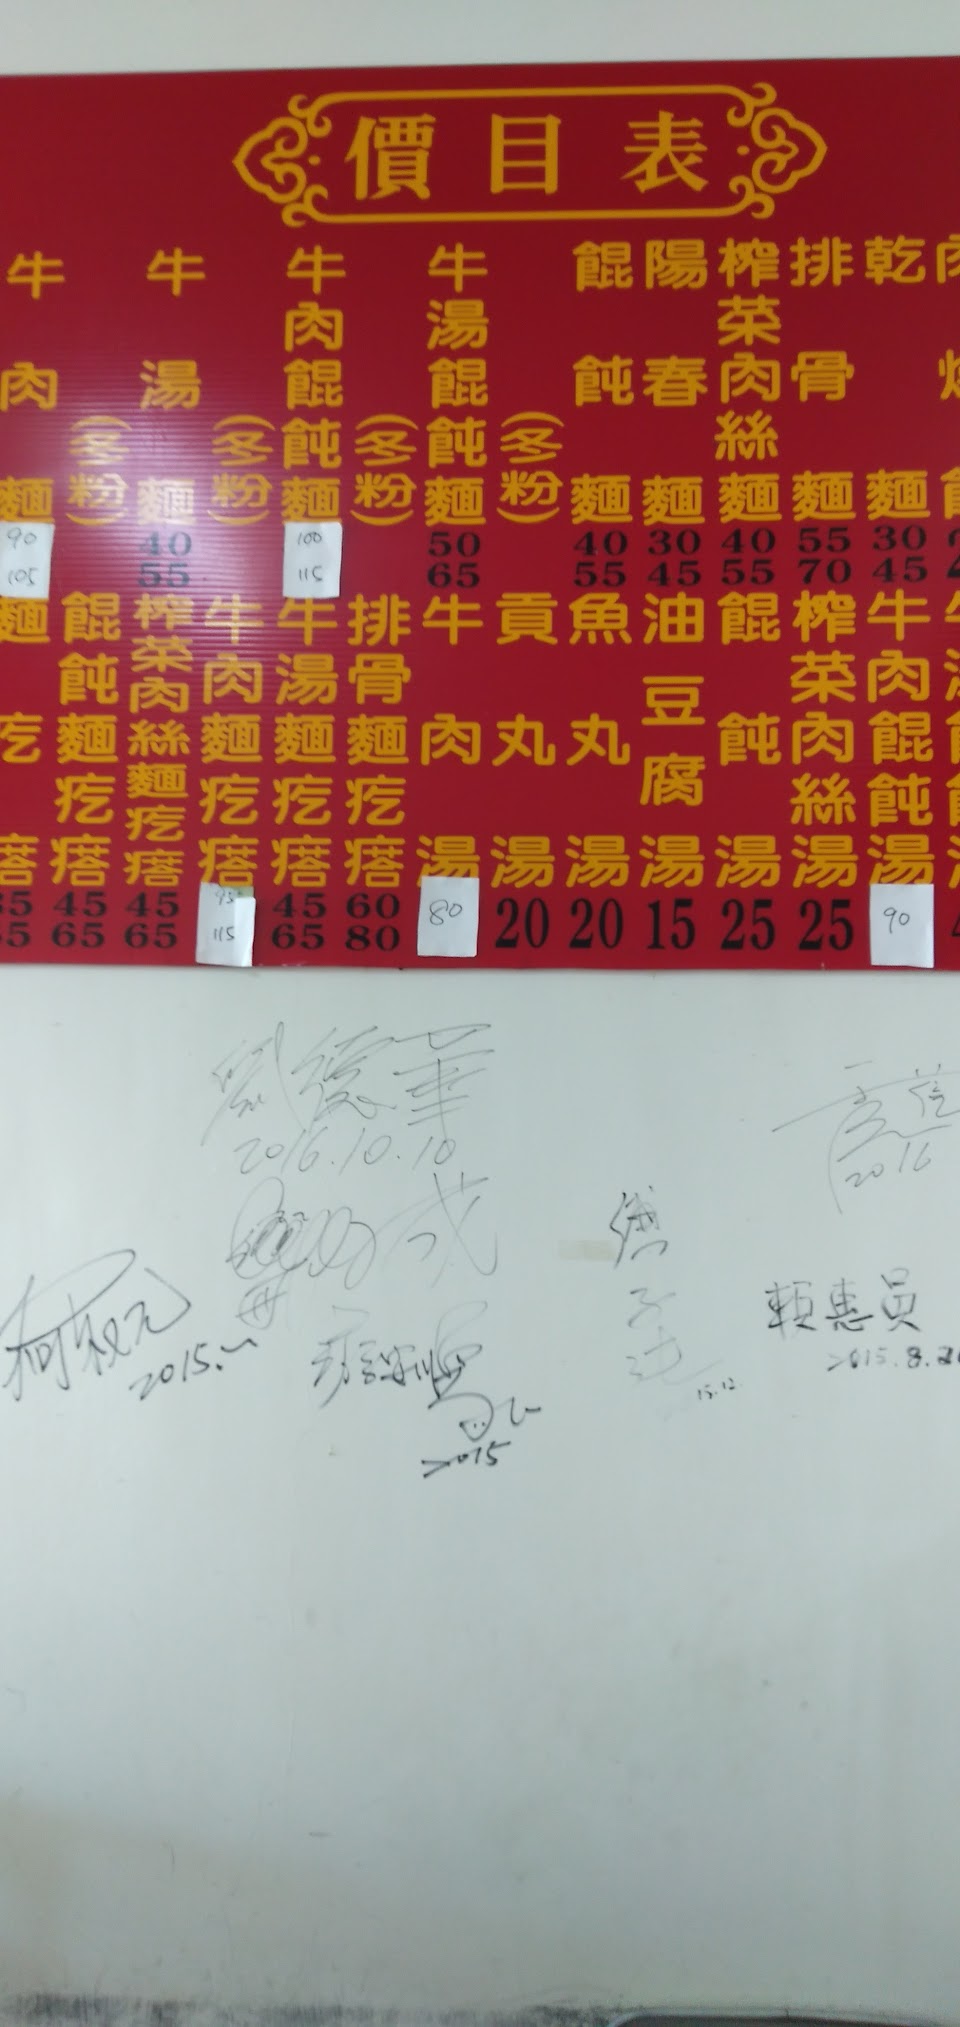 價目表
牛肉麵(冬粉) 90 105
牛湯麵(冬粉) 40 55
牛肉餛飩麵(冬粉) 100 115
牛湯餛飩麵(冬粉) 50 65
餛飩麵 40 55
陽春麵 30 45
榨菜肉絲麵 40 55
排骨麵 55 70
乾麵 30 45
餛飩麵疙瘩 45 65
榨菜肉絲麵疙瘩 45 65
牛肉麵疙瘩 95 115
牛湯麵疙瘩 45 65
排骨麵疙瘩 60 80
牛肉湯 80
貢丸湯 20
魚丸湯 20
油豆腐湯 15
餛飩湯 25
榨菜肉絲湯 25
牛肉餛飩湯 90
劉德華
2016.10.10
2016
2015.
2015
15.12.
賴惠員
2015.8.